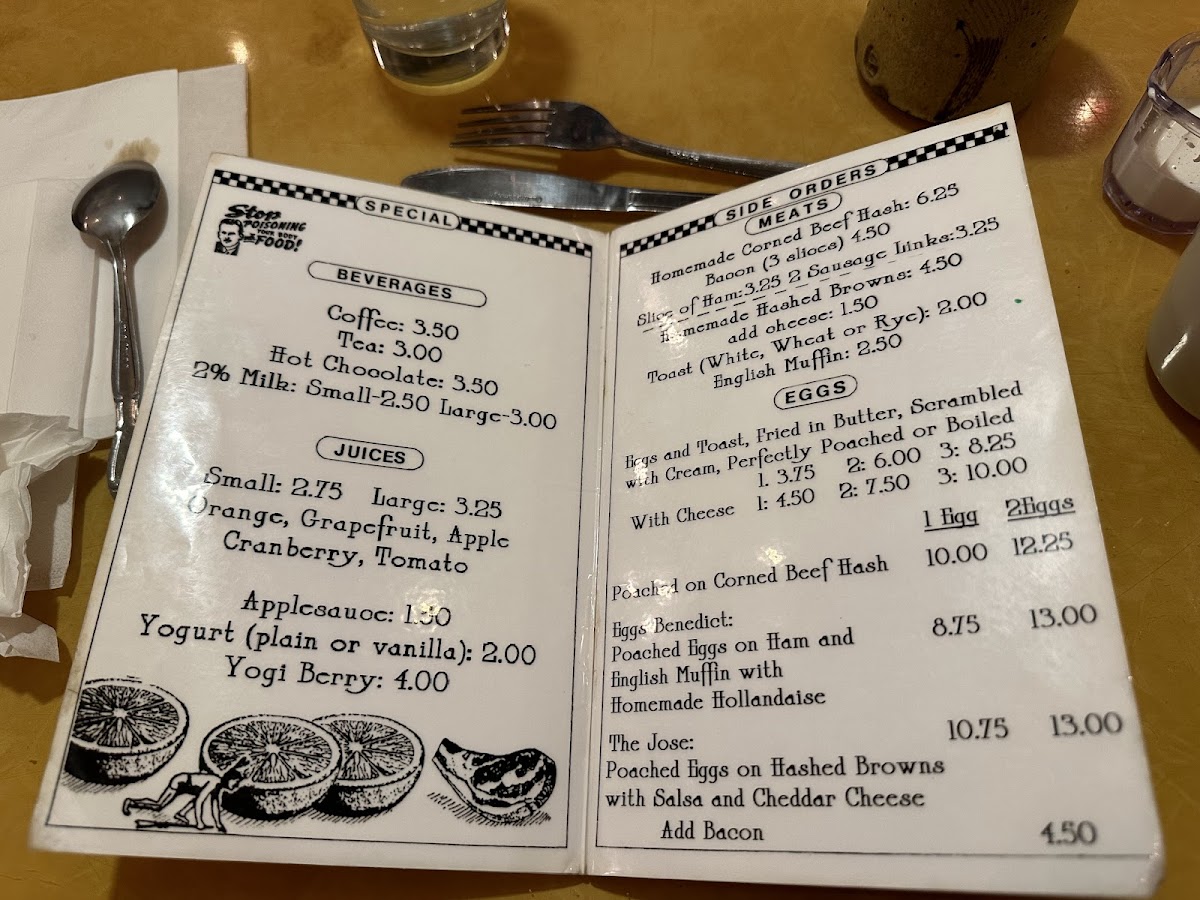 SPECIAL
Stop
POISONING
YOUR BODY
FOOD!
BEVERAGES
Coffee: 3.50
Tea: 3.00
Hot Chocolate: 3.50
2% Milk: Small-2.50 Large-3.00
JUICES
Small: 2.75 Large: 3.25
Orange, Grapefruit, Apple
Cranberry, Tomato
Applesauce: 1.50
Yogurt (plain or vanilla): 2.00
Yogi Berry: 4.00
SIDE ORDERS
MEATS
Homemade Corned Beef Hash: 6.25
Bacon (3 slices) 4.50
Slice of Ham: 3.25 2 Sausage Links: 3.25
Homemade Hashed Browns: 4.50
add cheese: 1.50
Toast (White, Wheat or Rye): 2.00
English Muffin: 2.50
EGGS
Eggs and Toast, Fried in Butter, Scrambled
with Cream, Perfectly Poached or Boiled
1. 3.75 2: 6.00 3: 8.25
With Cheese 1: 4.50 2: 7.50 3: 10.00
1 Egg 2Eggs
Poached on Corned Beef Hash 10.00 12.25
Eggs Benedict: 8.75 13.00
Poached Eggs on Ham and
English Muffin with
Homemade Hollandaise
The Jose: 10.75 13.00
Poached Eggs on Hashed Browns
with Salsa and Cheddar Cheese
Add Bacon 4.50